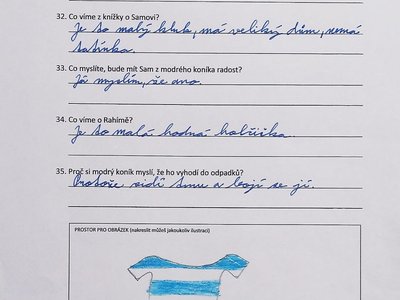 32. Co víme z knížky o Samovi?
Je to malý kluk, má veliký dům, nemá
tatínka.
33. Co myslíte, bude mít Sam z modrého koníka radost?
Já myslím, že ano.
34. Co víme o Rahímě?
Je to malá hodná holčička.
35. Proč si modrý koník myslí, že ho vyhodí do odpadků?
Protože vidí tmu a bojí se jí.
PROSTOR PRO OBRÁZEK (nakreslit můžeš jakoukoliv ilustraci)